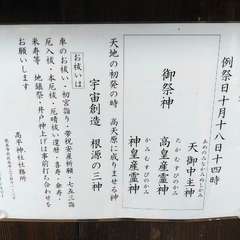 例祭日十月十八日十四時
御祭神
あめのみなかぬしのかみ
天御中主神
たかみむすびのかみ
高皇産霊神
かみむすびのかみ
神皇産霊神
天地の初発の時 高天原に成りませる神
宇宙創造 根源の三神
お祓いは
車のお祓い・初宮詣り・帯祝安産祈願・七五三詣
厄入祓い・本厄祓い・厄晴祓い還暦・喜寿・傘寿・
米寿等 地鎮祭・井戸神上げは事前打ち合わせを
お願いします
高平神社社務所